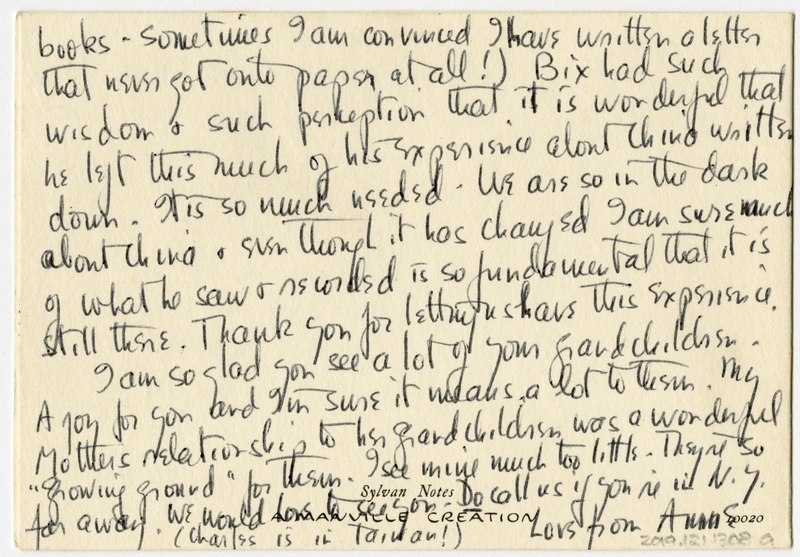 books - sometimes I am convinced I have written a letter
that never got onto paper at all!) Bix had such
wisdom & such perception that it is wonderful that
he left this much of his experience about China written
down. It is so much needed. We are so in the dark
about China & even though it has changed I am sure much
of what he saw & recorded is so fundamental that it is
still there. Thank you for letting us have this experience.
I am so glad you see a lot of your grandchildren.
A joy for you and I'm sure it means a lot to them. My
Mothers relationship to her grandchildren was a wonderful
"growing ground" for them. I see mine much too little. They're so
far away. We would love to see you. Do call us if you're in N.Y.
(Charles is in Taiwan!) Love from Anne
Sylvan Notes
ALMANVILLE CREATION
10020
2019.121.1308 a